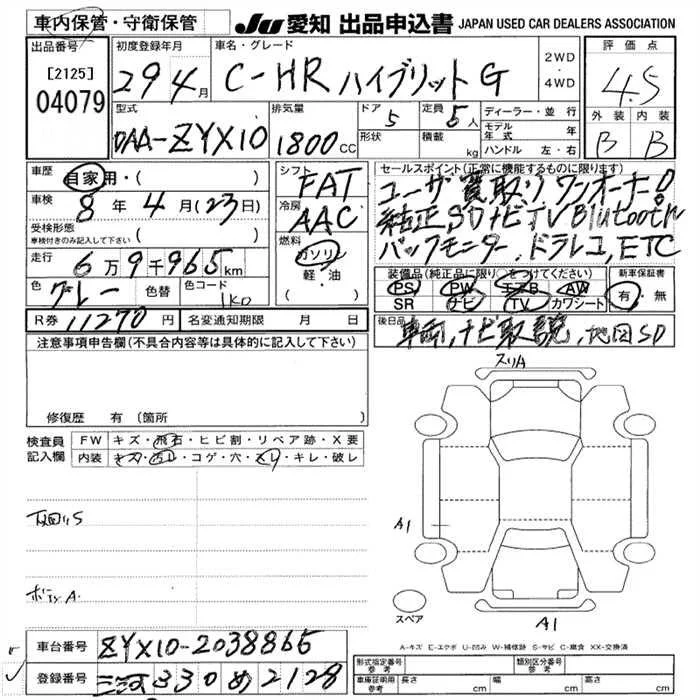 車内保管・守衛保管
JU 愛知 出品申込書 JAPAN USED CAR DEALERS ASSOCIATION
出品番号
[2125]
04079
初度登録年月
29 4月
車名・グレード
C-HR ハイブリット G
2WD
・
4WD
評価点
4.5
外装 内装
B B
型式
DAA-ZYX10
排気量
1800cc
ドア
5
形状
定員
5人
積載
kg
ディーラー・並行
モデル年式 年
ハンドル 左・右
車歴
自家用・( )
車検
8年 4月(23日)
受検形態
車検付きのみ記入して下さい ( )
走行
6万9千965km
色
グレー
色替
色コード
1K0
シフト
FAT
冷房
AAC
燃料
ガソリン
軽・油
セールスポイント(正常に機能するものに限ります)
ユーザ買取りワンオーナー!
純正SDナビTV Blutooth
バックモニター、ドラレコ、ETC
装備品(純正品に限り○をつけてください)
PS PW エアB AW
SR ナビ TV カワシート
新車保証書
有・無
R券 11270円
名変通知期限 月 日
後日品
車両、ナビ取説、地図SD
注意事項申告欄(不具合内容等は具体的に記入して下さい)
修復歴 有(箇所 )
検査員
記入欄
FW キズ・飛石・ヒビ割・リペア跡・X要
内装 キズ・汚レ・コゲ・穴・スレ・キレ・破レ
下回りS
ボディA.
スリA
A1
A1
スペア
A-キズ E-エクボ U-凹み W-補修跡 S-サビ C-腐食 XX-交換済
車台番号 ZYX10-2038865
登録番号 三河 330 め 2128
形式指定番号
参考
類別区分番号
参考
車庫証明用
参考
長さ cm
幅 cm
高さ cm